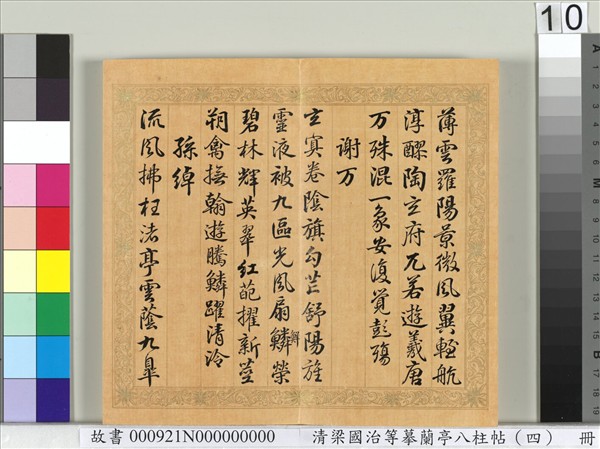 10
薄雲羅陽景微風翼輕航
淳醪陶玄府兀若遊羲唐
万殊混一象安復覺彭殤
謝万
玄冥卷陰旗勾芒舒陽旌
靈液被九區光風扇鱗榮
碧林輝英翠紅葩擢新莖
翔禽撫翰遊騰鱗躍清泠
孫綽
流風拂枉渚亭雲蔭九皋
故書 000921N000000000 清梁國治等摹蘭亭八柱帖（四） 冊